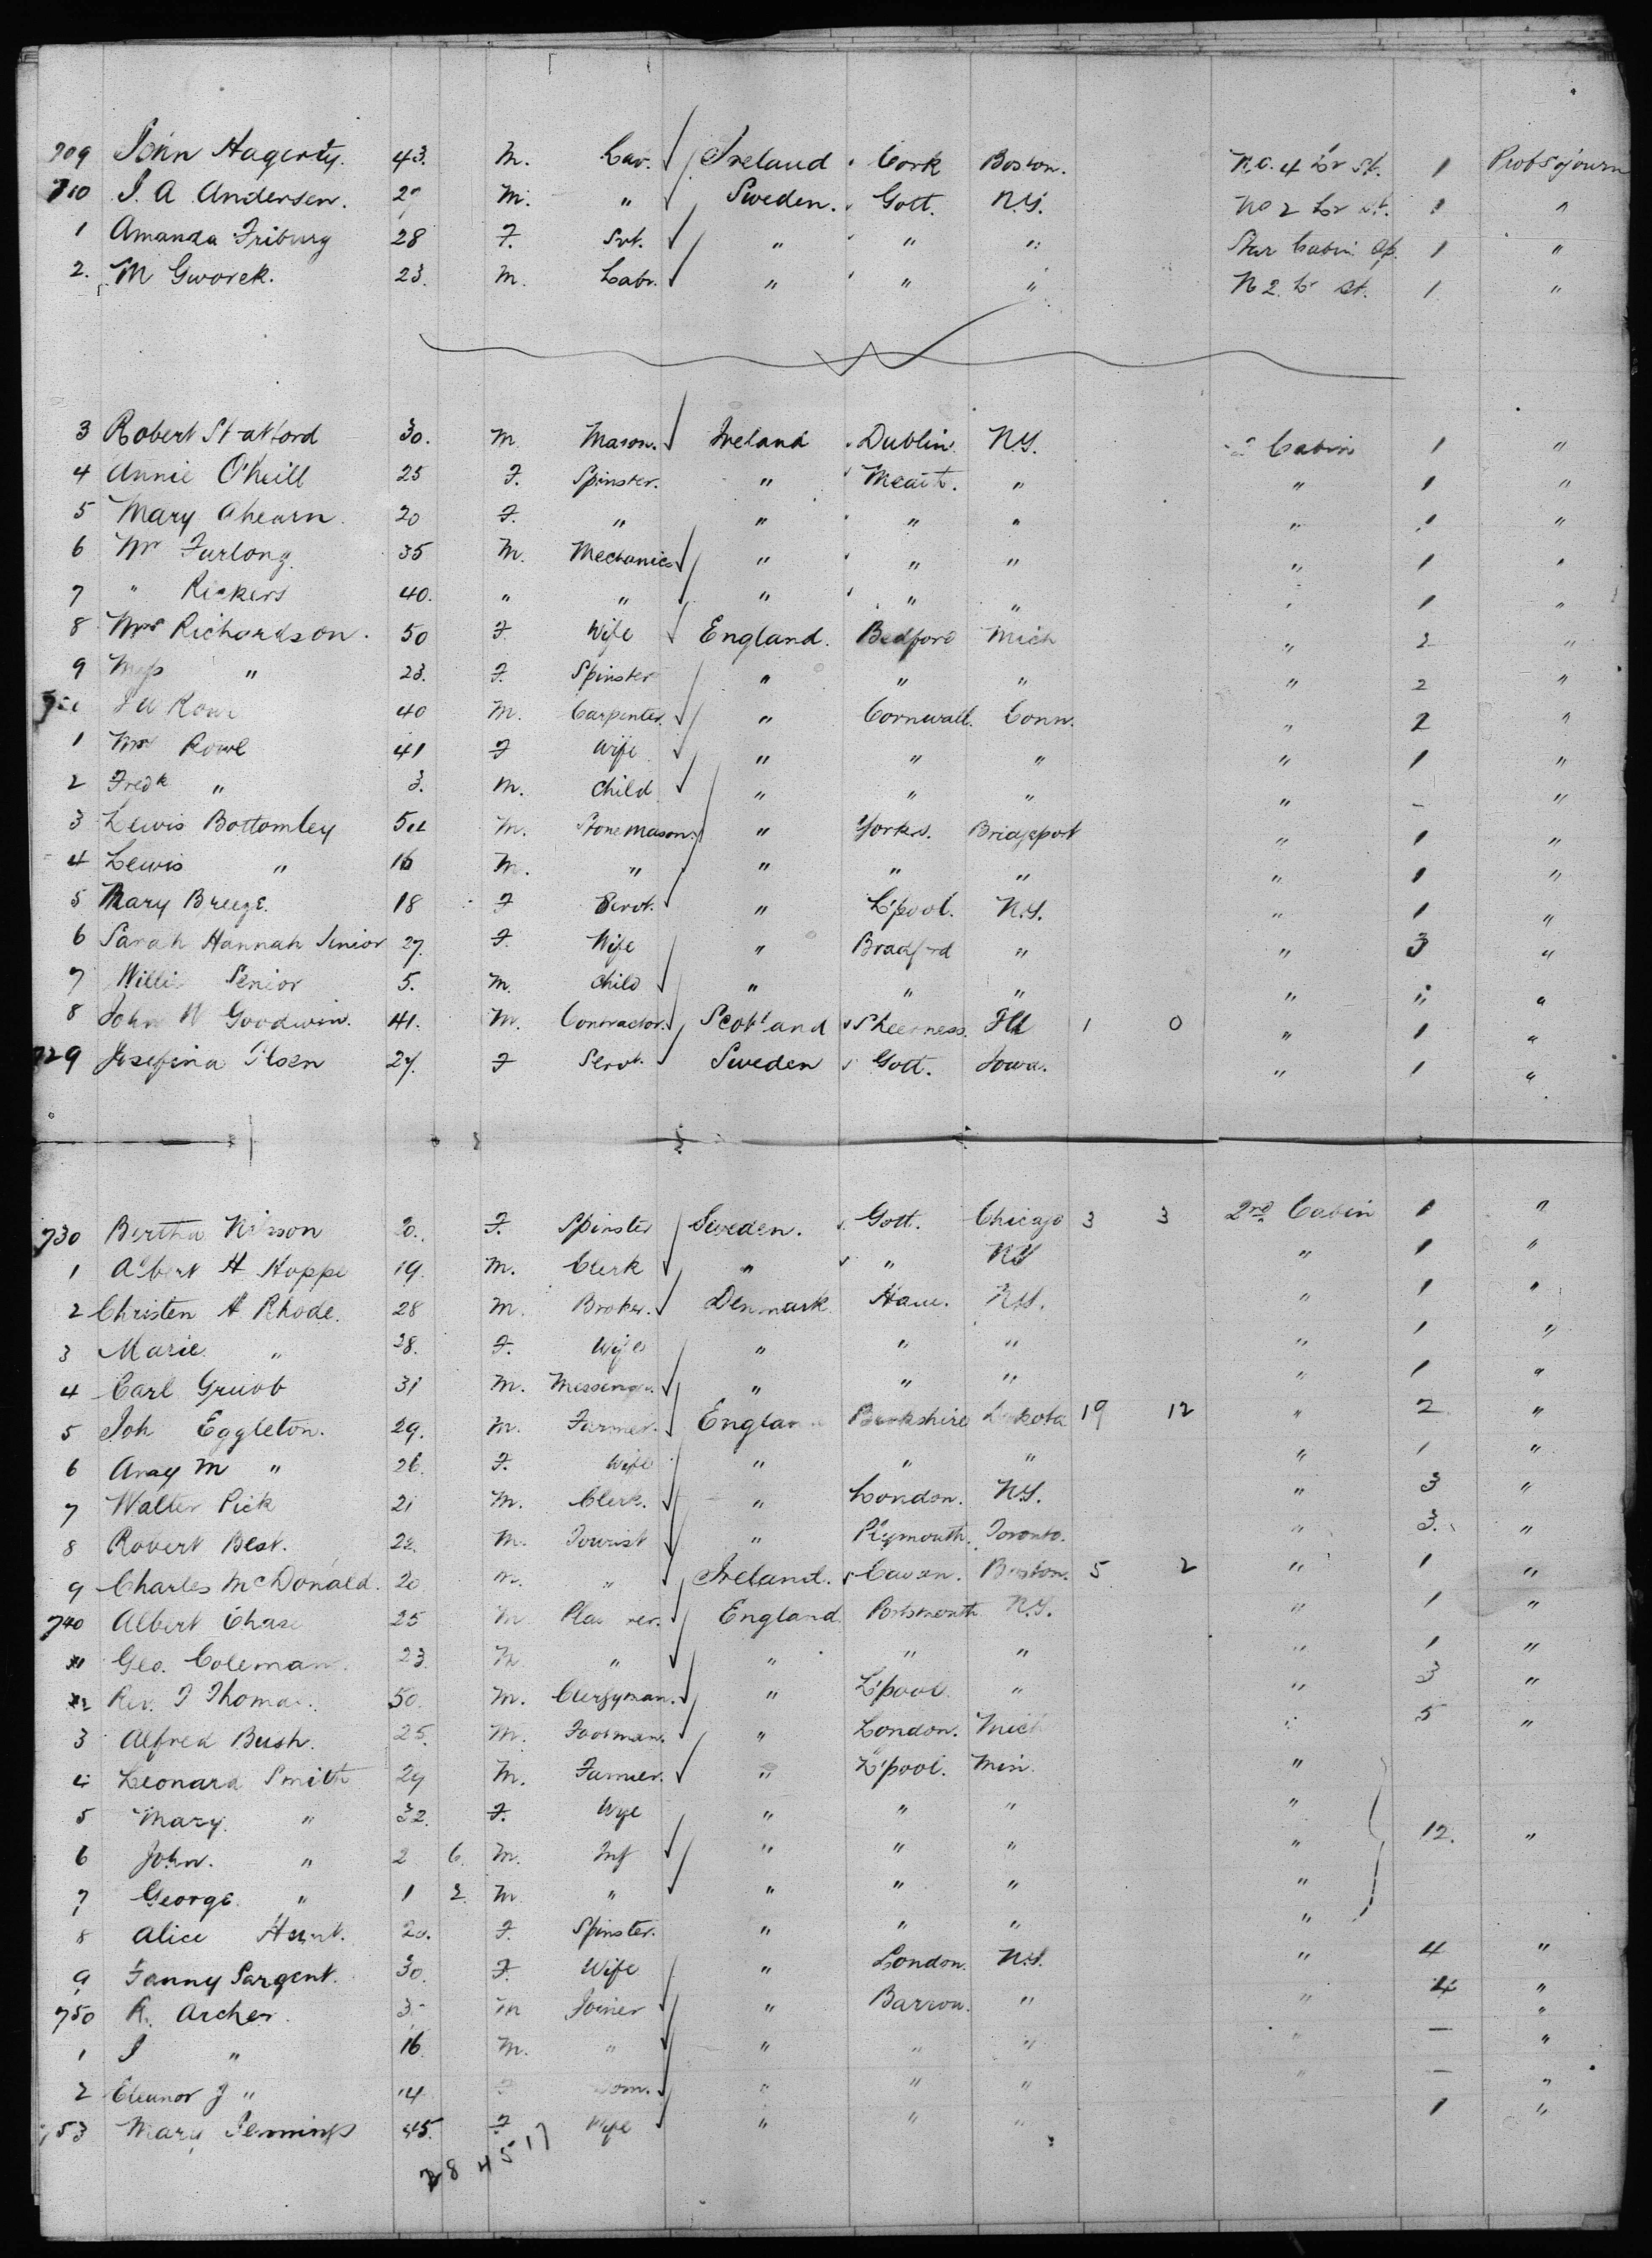 709 John Hagerty. 43. M. Lab. Ireland Cork Boston. No. 4 Lr St. 1 Prob Sojourn
710 J. A Andersen. 29 M. " Sweden. Gott. N.Y. No 2 Lr St. 1 "
1 Amanda Friburg 28 F. Svt. " " " Star Cabin Af. 1 "
2. M Gworek. 23. M. Labr. " " " N 2. Lr St. 1 "
3 Robert Statford 30. M Mason. Ireland Dublin. N.Y. Cabin 1 "
4 Annie O'Neill 25 F. Spinster. " Meath. " " 1 "
5 Mary Ahearn. 20 F. " " " " " 1 "
6 Mr Furlong. 35 M. Mechanic " " " " 1 "
7 " Rickers 40. " " " " " " 1 "
8 Mrs Richardson. 50 F. Wife England. Bedford Mich " 2 "
9 Miss " 23. F. Spinster " " " " 2 "
40 M. Carpenter. " Cornwall. Conn. " 2 "
1 Mrs Rowe 41 F Wife " " " " 1 "
2 Fredk " 3. M. Child " " " " – "
3 Lewis Bottomley M. Stone Mason. " Yorks. Bridgeport " 1 "
4 Lewis " 16 M. " " " " " 1 "
5 Mary Breeze. 18 F Servt. " L'pool. N.Y. " 1 "
6 Sarah Hannah Senior 27. F. Wife " Bradford " " 3 "
7 Willie Senior 5. M. Child " " " " " "
8 John W Goodwin. 41. M. Contractor. Scotland Sheerness. Ill 1 0 " 1 "
729 Josefina Olsen 27. F Servt. Sweden Gott. Iowa. " 1 "
730 Bertha Nilsson 20. F. Spinster Sweden. Gott. Chicago 3 3 2nd Cabin 1 "
1 Albert H Hoppe 19. M. Clerk " " NY " 1 "
2 Christen H Rhode. 28 M. Broker. Denmark N.Y. " 1 "
3 Marie. " 28. F. Wife " " " " 1 "
4 Carl Grubb 31 M. Messenger. " " " " 1 "
5 Joh Eggleton. 29. M. Farmer. England Berkshire Dakota 19 12 " 2 "
6 M " 26. F. Wife " " " " 1 "
7 Walter Pick 21 M. Clerk. " London. N.Y. " 3 "
8 Robert Best. 22. M. Tourist " Plymouth. Toronto. " 3. "
9 Charles McDonald. 20 M. " Ireland. Cavan. Boston. 5 2 " 1 "
740 Albert Chase 25 M England Portsmouth N.Y. " 1 "
Geo. Coleman. 23. M. " " " " " 1 "
Rev. J Thomas. 50. M. Clergyman. " L'pool " " 3 "
3 Alfred Bush. 25. M. Footman. " London. Mich " 5 "
4 Leonard Smith 29 M. Farmer. " L'pool. Min. "
5 Mary. " 32. F. Wife " " " "
6 John. " 2 6. M. Inf " " " " 12. "
7 George. " 1 2. M " " " " "
8 Alice Hunt. 20. F. Spinster. " " " "
9 Fanny Sargent. 30. F. Wife " London. N.Y. " 4 "
750 R. Archer. M Joiner " Barrow. " " 4 "
1 J " 16. M. " " " " " – "
2 Eleanor J " 14 F Dom. " " " " – "
753 Mary Jennings 45. F Wife " " " 1 "
28 4517